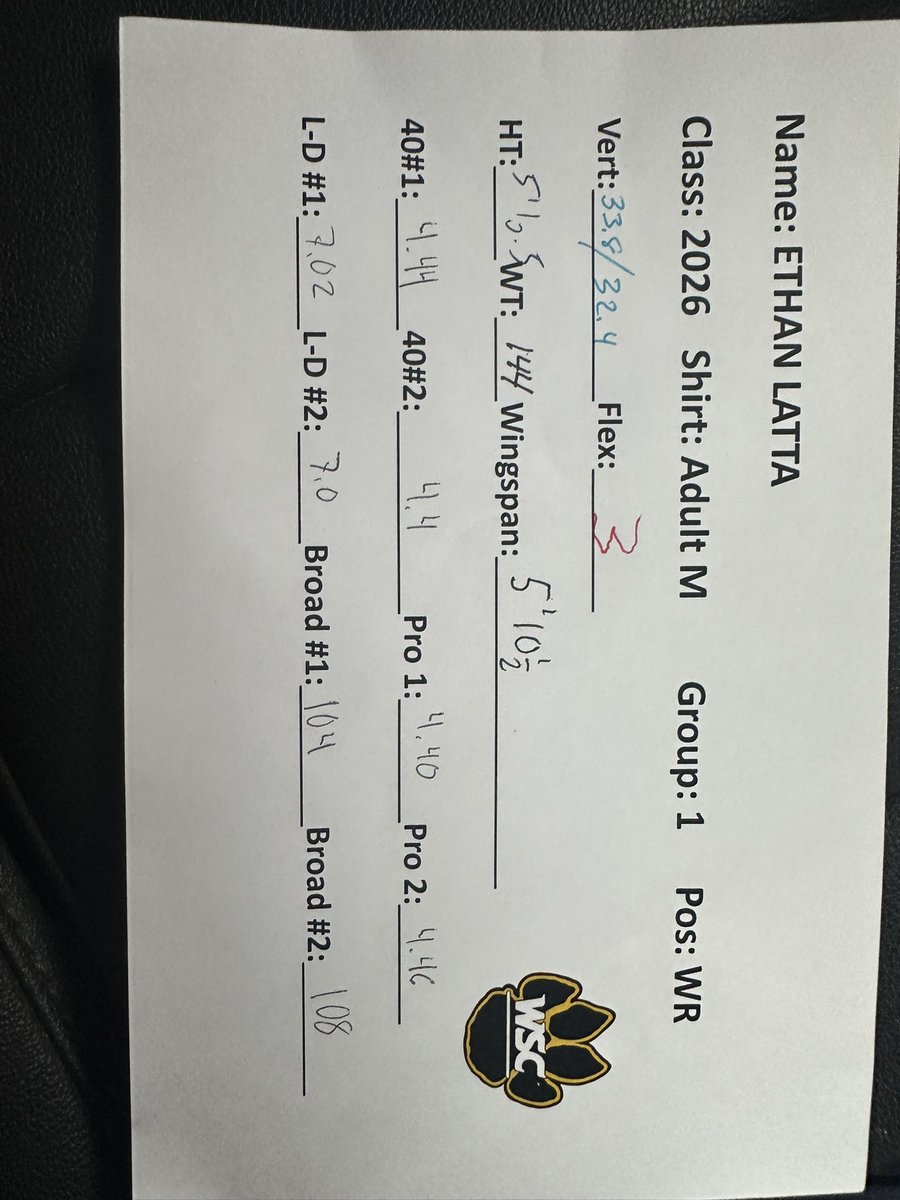 Name: ETHAN LATTA
Class: 2026 Shirt: Adult M Group: 1 Pos: WR
Vert: 33.8/32.4 Flex: 3
HT: WT: 144 Wingspan: 5'10 1/2
40#1: 4.44 40#2: 4.4 Pro 1: 4.40 Pro 2: 4.46
L-D #1: 7.02 L-D #2: 7.0 Broad #1: 104 Broad #2: 108
WSC